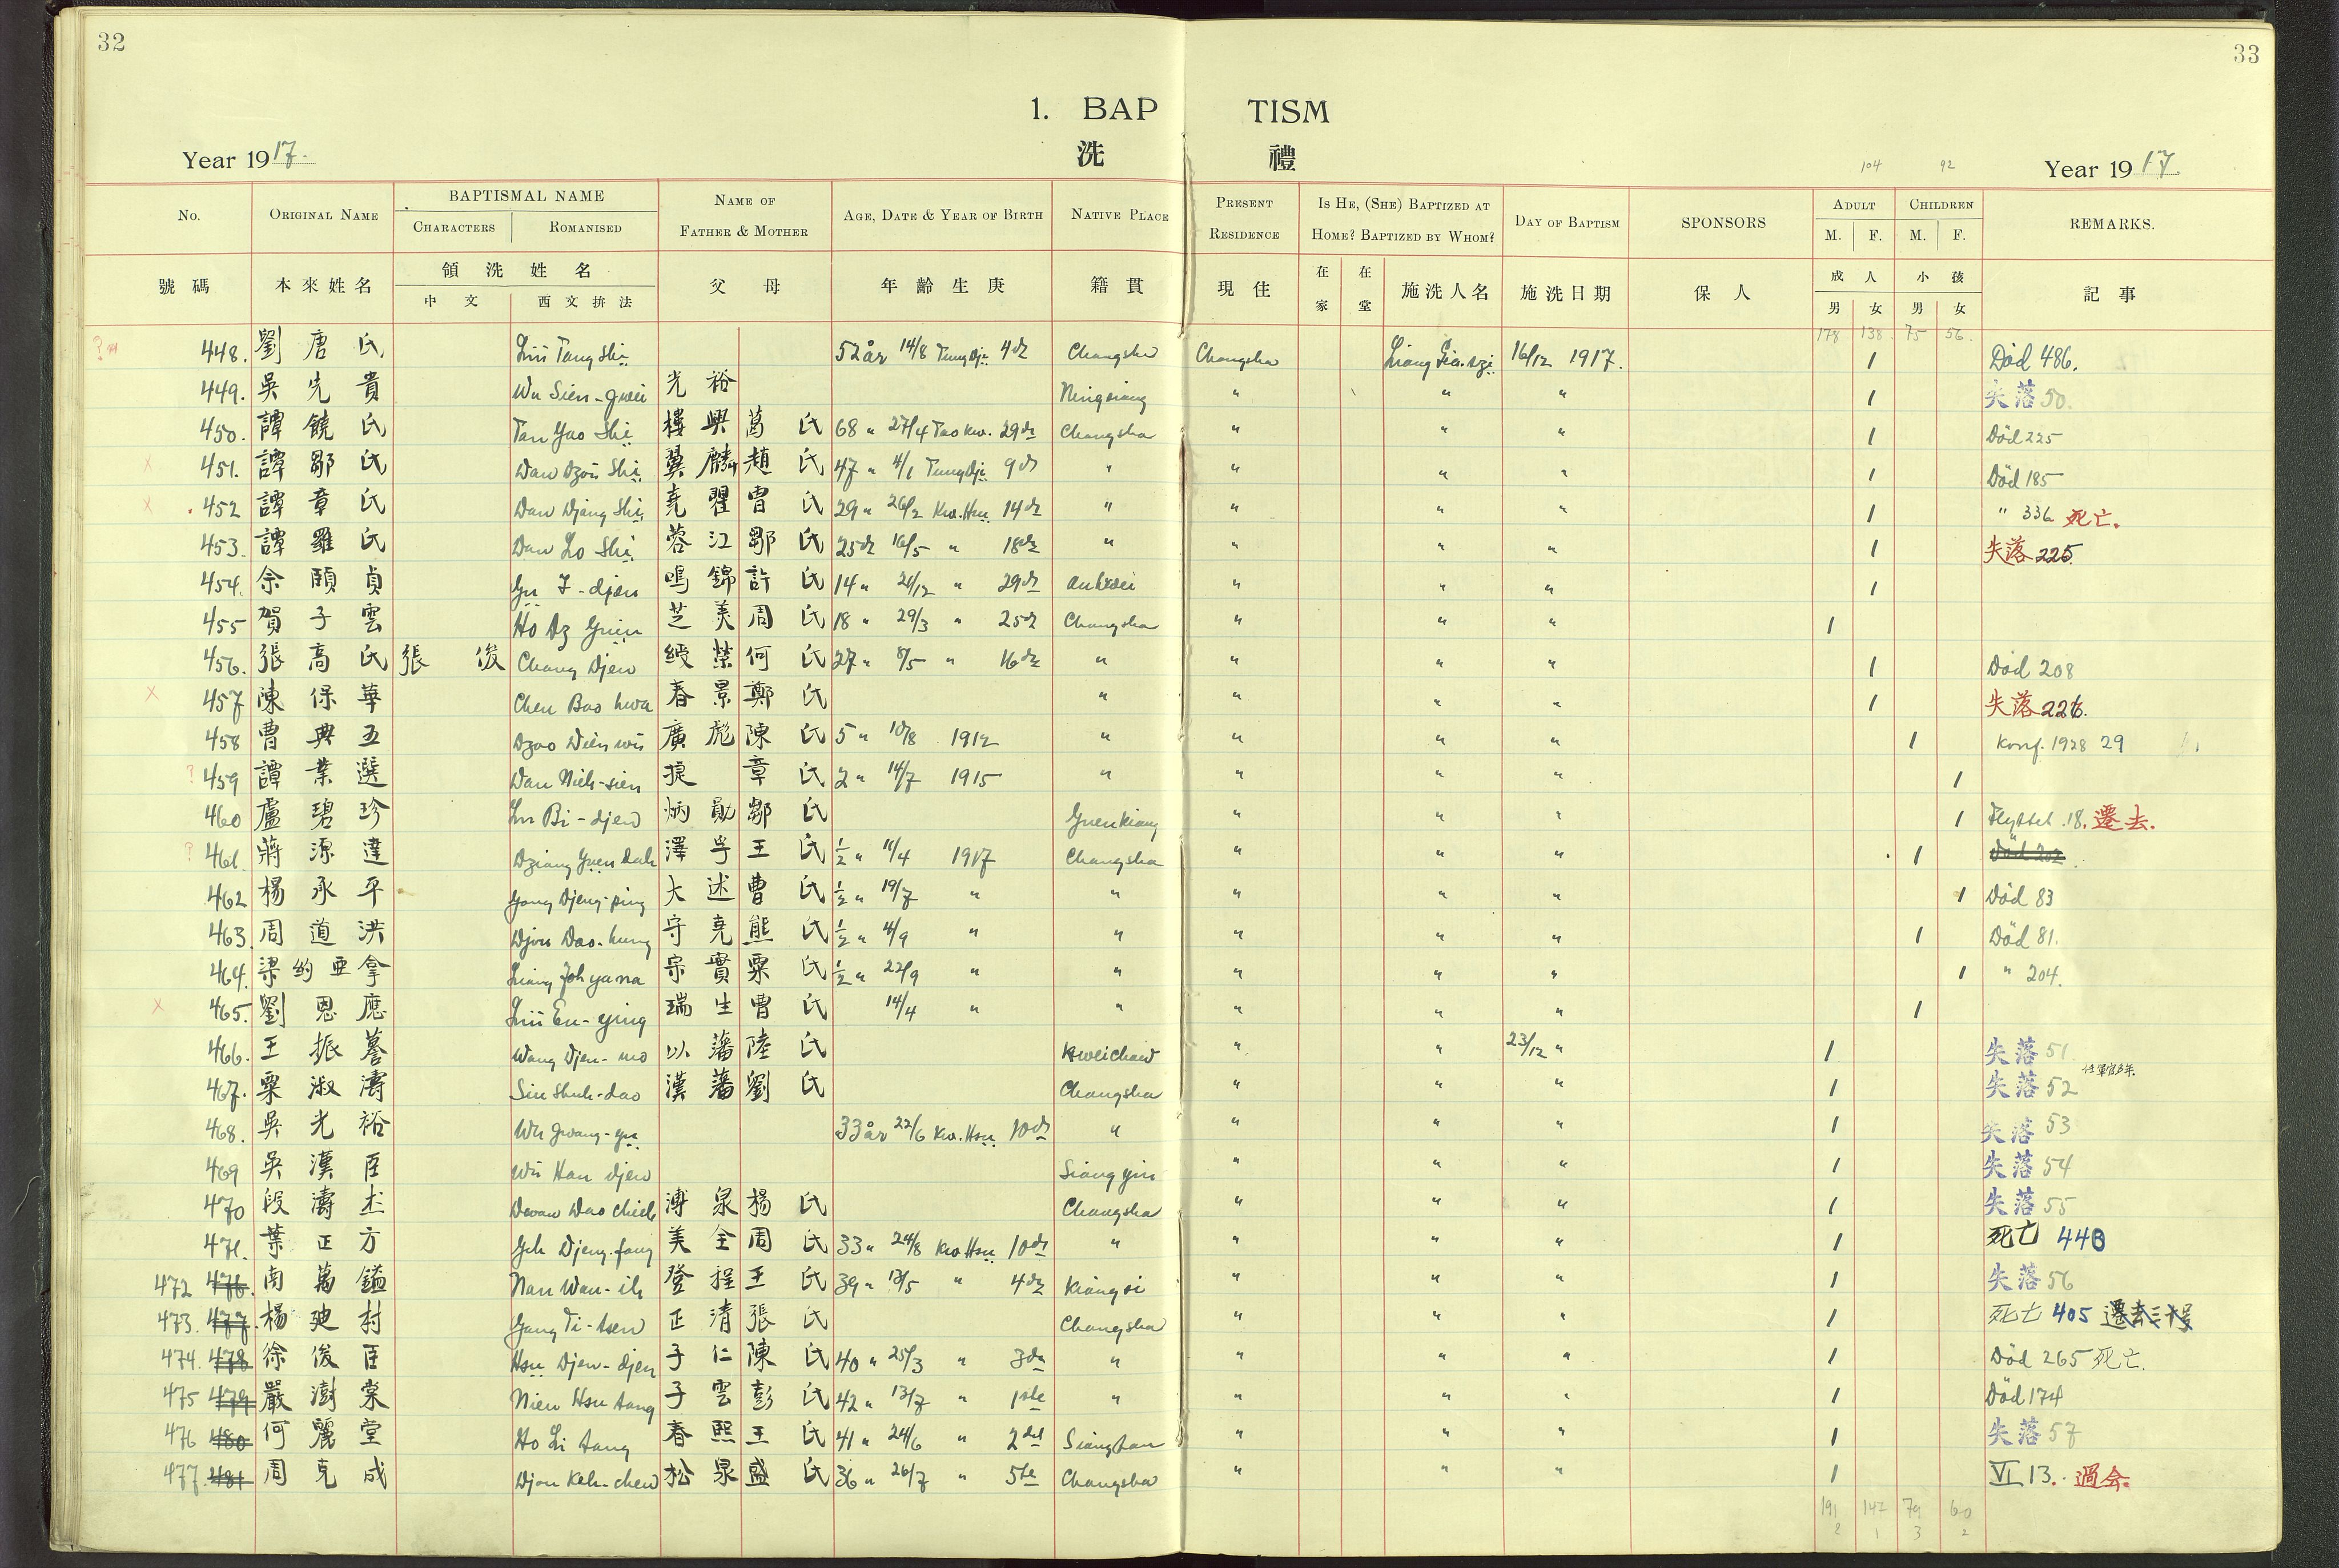 32
33
1. BAPTISM
洗禮
Year 1917.
104 92
Year 1917.
No. ORIGINAL NAME BAPTISMAL NAME CHARACTERS ROMANISED NAME OF FATHER & MOTHER AGE, DATE & YEAR OF BIRTH NATIVE PLACE PRESENT RESIDENCE IS HE, (SHE) BAPTIZED AT HOME? BAPTIZED BY WHOM? DAY OF BAPTISM SPONSORS ADULT M. F. CHILDREN M. F. REMARKS.
號碼 本來姓名 領洗姓名 中文 西文拚法 父母 年齡生庚 籍貫 現住 在家 在堂 施洗人名 施洗日期 保人 成人 男 女 小孩 男 女 記事
178 138 75 56
448. 劉唐氏 Liu Tang Shi 52 år 14/8 Tung Dji 4de Changsha Changsha Liang Gia-dzi 16/12 1917. 1 Död 486.
449. 吳先貴 Wu Sien-gwei 光裕 Ningsiang " " " 1 失落 50.
450. 譚饒氏 Tan Yao Shi 樓興 葛氏 68 " 27/4 Tao kw. 29de Changsha " " " 1 Död 225
451. 譚鄒氏 Dan Dzou Shi 翼麟 趙氏 47 " 4/1 Tung Dji 9de " " " " 1 Död 185
452 譚章氏 Dan Djang Shi 堯瞿 曹氏 29 " 26/2 Kw. Hsu 14de " " " " 1 " 336 死亡.
453. 譚羅氏 Dan Lo Shi 蓉江 鄒氏 25 16/5 " 18de " " " " 1 失落 225
454. 余頤貞 Yu I-djen 鳴錦 許氏 14 " 21/12 " 29de Anhwei " " " 1
455 賀子雲 Ho Dz Yuin 芝美 周氏 18 " 29/3 " 25de Changsha " " " 1
456. 張高氏 張俊 Chang Djen 綬榮 何氏 27 " 8/5 " 16de " " " " 1 Död 208
457 陳保華 Chen Bao hwa 春景 鄭氏 " " " " 1 失落 226.
458 曹典五 Dzao Dien wu 廣彪 陳氏 5 " 10/8 1912 " " " " 1 Konf. 1928 29
459 譚業選 Dan Nieh-sien 捷 章氏 2 " 14/7 1915 " " " " 1
460 盧碧珍 Lu Bi-djen 炳勛 鄒氏 Yuenkiang " " " 1 Flyttet. 18. 遷去.
461. 蔣源達 Dziang Yuen dah 澤孚 王氏 ½ " 11/4 1917 Changsha " " " 1 Död 202
462 楊承平 Yang Djeng-ping 大述 曹氏 ½ " 19/7 " " " " " 1 Död 83
463. 周道洪 Djou Dao-hung 守堯 熊氏 ½ " 4/9 " " " " " 1 Död 81.
464. 梁約亞拿 Liang Joh ya na 宗實 粟氏 ½ " 22/9 " " " " " 1 " 204.
465. 劉恩應 Liu En-ying 瑞生 曹氏 14/4 " " " " " 1
466. 王振謩 Wang Djen-mo 以藩 陸氏 Kweichaw " " 23/12 " 1 失落 51
467. 粟淑濤 Siu Shuh-dao 漢藩 劉氏 Changsha " " " 1 失落 52
468. 吳光裕 Wu Gwang-yu 33 år 22/6 Kw. Hsu 10de " " " " 1 失落 53
469 吳漢臣 Wu Han djen Siangyin " " " 1 失落 54
470 段濤杰 Dwan Dao chieh 溥泉 楊氏 Changsha " " " 1 失落 55
471. 葉正方 Yeh Djeng-fang 美全 周氏 33 " 24/8 Kw Hsu 10de " " " " 1 死亡 448
472 476. 南萬鎰 Nan Wan-ih 登程 王氏 39 " 13/5 " 4de Kiangsi " " " 1 失落 56
473. 477. 楊廸村 Yang Ti-tsen 正清 張氏 Changsha " " " 1 死亡 405 遷去
474. 478 徐俊臣 Hsu Djen-djen 子仁 陳氏 40 " 25/3 " 3de " " " " 1 Död 265 死亡.
475 479 嚴澍棠 Nien Hsu tang 子雲 彭氏 42 " 13/7 " 1ste " " " " 1 Död 174
476 480 何麗堂 Ho Li tang 春熙 王氏 41 " 24/6 " 2det Siangtan " " " 1 失落 57
477. 481 周克成 Djou Keh-chen 松泉 盛氏 36 " 26/7 " 5te Changsha " " " 1 VI 13. 過会.
191 147 79 60
2 1 3 2